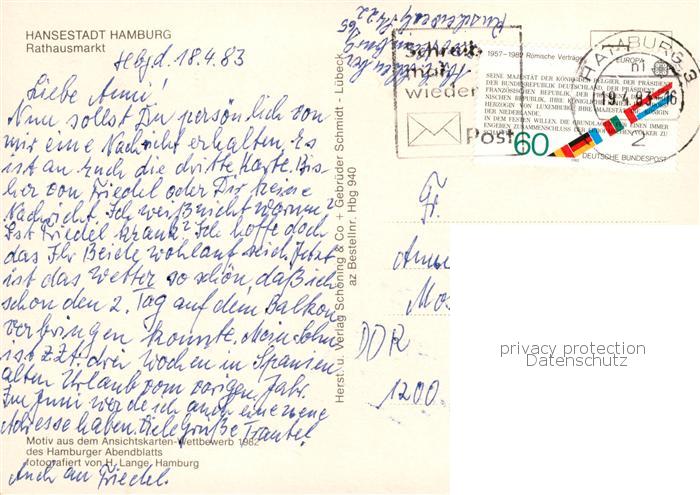 HANSESTADT HAMBURG
Rathausmarkt
Hbg d. 18.4.83
Liebe Anni!
Nun sollst Du persönlich von
mir eine Nachricht erhalten. Es
ist an Euch die dritte Karte. Bis-
her von Friedel oder Dir keine
Nachricht. Ich weiß nicht warum?
Ist Friedel krank? Ich hoffe doch
das Ihr Beide wohlauf seid. Jetzt
ist das Wetter so schön, daß ich
schon den 2. Tag auf dem Balkon
verbringen konnte. Mein Sohn
ist z.Zt. drei Wochen in Spanien
alten Urlaub vom vorigen Jahr.
Im Juni werde ich auch eine neue
Adresse haben. Viele Grüße Trautel
Motiv aus dem Ansichtskarten-Wettbewerb 1982
des Hamburger Abendblatts
fotografiert von H. Lange, Hamburg
Auch an Friedel.
Herst. u. Verlag Schöning & Co + Gebrüder Schmidt - Lübeck
az Bestellnr. Hbg 940
schreib
mal
wieder
Post
HAMBURG
19.4.83-16
2
1957-1982 Römische Verträge
EUROPA
SEINE MAJESTÄT DER KÖNIG DER BELGIER, DER PRÄSIDENT
DER BUNDESREPUBLIK DEUTSCHLAND, DER PRÄSIDENT
FRANZÖSISCHEN REPUBLIK, DER PRÄSIDENT
NISCHEN REPUBLIK, IHRE KÖNIGLICHE
HERZOGIN VON LUXEMBURG, IHRE MAJESTÄT DIE KÖNIGIN
DER NIEDERLANDE,
IN DEM FESTEN WILLEN, DIE GRUNDLAGEN EINEN IMMER
ENGEREN ZUSAMMENSCHLUSS DER EUROPÄISCHEN VÖLKER ZU
60
DEUTSCHE BUNDESPOST
Fr.
DDR
1200
privacy protection
Datenschutz